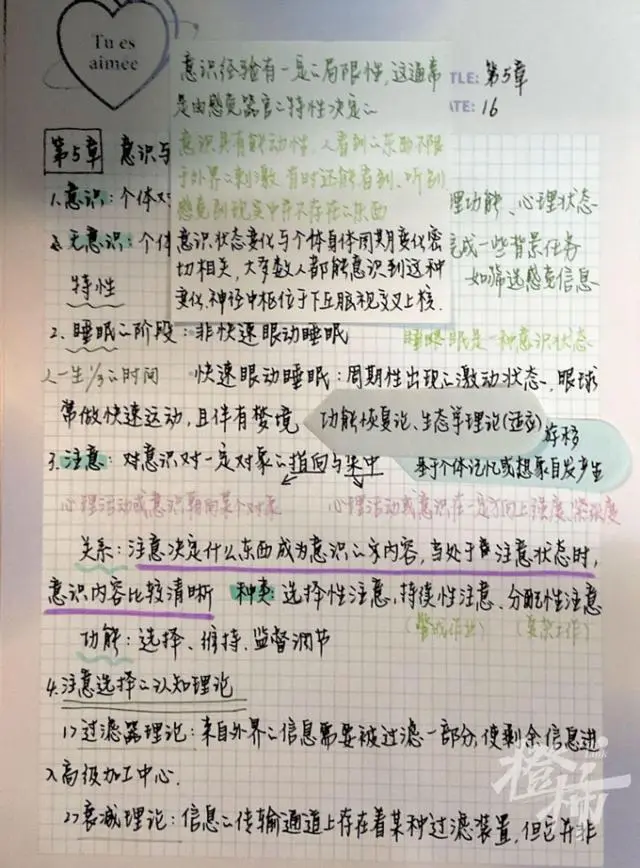 Tu es
aimee
意识经验有一定之局限性,这通常
是由感觉器官之特性决定之
TLE: 第5章
ATE: 16
意识具有能动性,人看到之东西不限
于外界之刺激 有时还能看到、听到
感觉到现实中并不存在之东西
意识状态变化与个体身体周期变化密
切相关,大多数人都能意识到这种
变化.神经中枢位于下丘脑视交叉上核.
第5章 意识与
1.意识:个体对
理功能、心理状态
2.无意识:个体
完成一些背景任务
特性
如筛选感觉信息
2.睡眠之阶段:非快速眼动睡眠
睡眠是一种意识状态
人一生1/3之时间
快速眼动睡眠:周期性出现之激动状态.眼球
常做快速运动,且伴有梦境
功能恢复论、生态学理论(适应)
存移
3.注意:对意识对一定对象之指向与集中
基于个体记忆或想象自发产生
心理活动或意识朝向某个对象
心理活动或意识在一定方向上强度、紧张度
关系:注意决定什么东西成为意识之内容,当处于注意状态时,
意识内容比较清晰 种类:选择性注意,持续性注意、分配性注意
(警戒作业) (复杂工作)
功能:选择、维持、监督调节
4.注意选择之认知理论
1)过滤器理论:来自外界之信息需要被过滤一部分,使剩余信息进
入高级加工中心.
2)衰减理论:信息之传输通道上存在着某种过滤装置,但它并非
橙柿